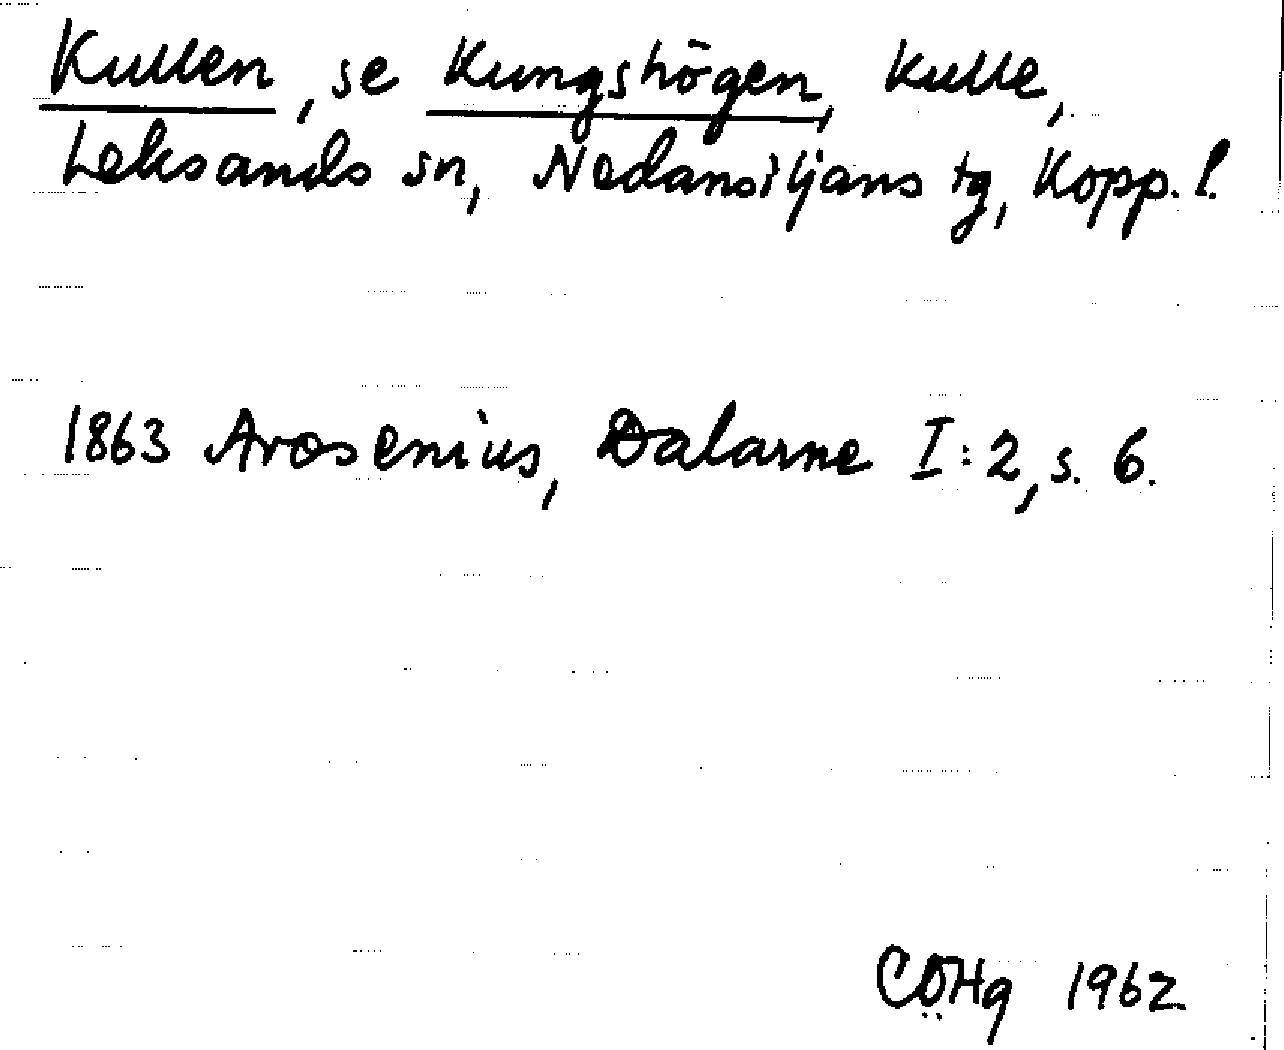 Kullen, se Kungshögen, kulle,
Leksands sn, Nedansiljans tg, Kopp. l.
1863 Arosenius, Dalarne I:2, s. 6.
CÖHg 1962